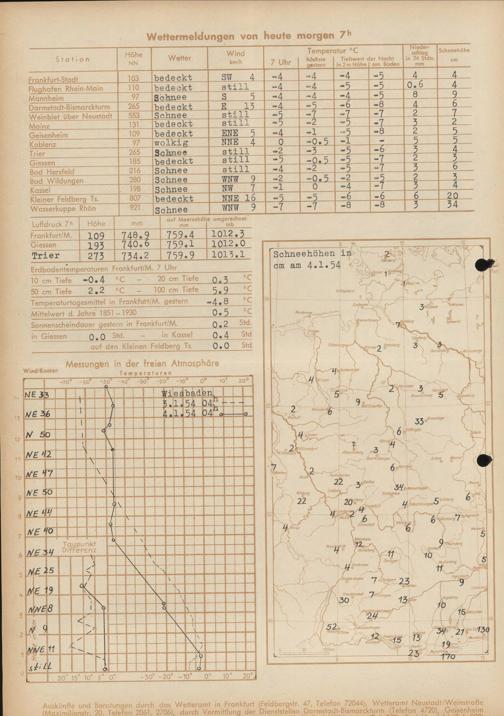 Wettermeldungen von heute morgen 7ʰ
Station Höhe NN Wetter Wind km/h Temperatur °C Nieder-schlag in 24 Stdn. mm Schneehöhe cm
7 Uhr höchste gestern Tiefstwert der Nacht in 2 m Höhe am Boden
Frankfurt-Stadt 103 bedeckt SW 4 -4 -4 -4 -5 4 4
Flughafen Rhein-Main 110 bedeckt still -4 -4 -4 -5 0.6 4
Mannheim 97 Schnee S 5 -4 -4 -4 -5 8 9
Darmstadt-Bismarckturm 265 bedeckt E 13 -4 -5 -6 -8 4 6
Weinbiet über Neustadt 553 Schnee still -7 -7 -7 2 7
Mainz 131 bedeckt still -5 -2 -5 -7 3 2
Geisenheim 109 bedeckt ENE 5 -4 -1 -5 -8 2 5
Koblenz 97 wolkig NNE 4 0 -0.5 -1 - 5 5
Trier 265 Schnee still -2 -3 -5 -6 3 4
Giessen 185 bedeckt still -5 -0.5 -5 -7 2 3
Bad Hersfeld 216 Schnee still -4 -2 -5 -7 3 6
Bad Wildungen 280 Schnee WNW 9 -2 -0.5 -2 -5 2 3
Kassel 198 Schnee NW 7 -1 0 -4 -7 3 4
Kleiner Feldberg Ts. 807 bedeckt NNE 16 -5 -5 -6 -6 6 20
Wasserkuppe Rhön 921 Schnee WNW 9 -7 -7 -8 -8 3 34
Luftdruck 7ʰ Höhe mm auf Meereshöhe umgerechnet mm mb
Frankfurt/M. 109 748.9 759.4 1012.3
Giessen 193 740.6 759.1 1012.0
Trier 273 734.2 759.9 1013.1
Erdbodentemperaturen Frankfurt/M. 7 Uhr
10 cm Tiefe -0.4 °C - 20 cm Tiefe 0.3 °C
50 cm Tiefe 2.2 °C - 100 cm Tiefe 5.9 °C
Temperaturtagesmittel in Frankfurt/M. gestern -4.8 °C
Mittelwert d. Jahre 1851-1930 0.5 °C
Sonnenscheindauer gestern in Frankfurt/M. 0.2 Std.
in Giessen 0.0 Std. - in Kassel 0.4 Std.
auf dem Kleinen Feldberg Ts. 0.0 Std.
Messungen in der freien Atmosphäre
Wind/Knoten Temperaturen
-70° -60° -50° -40° -30° -20° -10° 0° +10° +20°
Wiesbaden
3.1.54 04ʰ
4.1.54 04ʰ
NE 33
NE 36
N 50
NE 42
NE 47
NE 50
NE 44
NE 40
NE 34
Taupunkt Differenz
NE 25
NE 19
NNE 8
N 9
NNE 11
still
20° 15° 10° 5° 0° -50° -30° -10° 0° 10° 20°
Schneehöhen in
cm am 4.1.54
2
1
3
7
2 3 3
4
4
5 3 5
9
2 6
33
4
6
7 4
3
7 2
22 3 34
22 20 4 5 6
4 2 4
6 6 7
4
12 9 5
4 11 10
11 5
4
7 23 9
30 7 13
10
24 15
52 34 21 130
12 15 13
19
23 170
Auskünfte und Beratungen durch das Wetteramt in Frankfurt (Feldbergstr. 47, Telefon 72044), Wetteramt Neustadt/Weinstraße
(Maximilianstr. 20, Telefon 2061, 2706), durch Vermittlung der Dienststellen Darmstadt-Bismarckturm, (Telefon 4720), Geisenheim